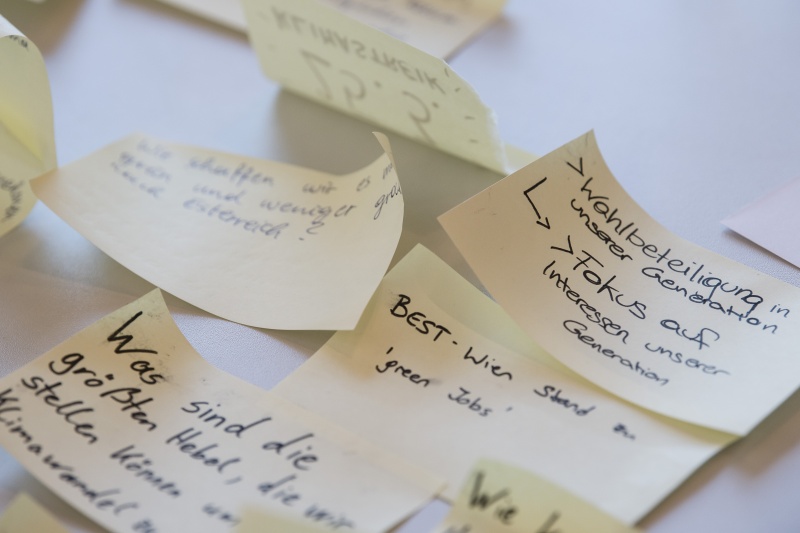 KLIMASTREIK
25.3.
Wie schaffen wir es
grün und weniger grau
wird Österreich?
> Wahlbeteiligung in
unserer Generation
↳ > Fokus auf
Interessen unserer
Generation
BEST-Wien Stand zu
'green Jobs'
Was sind die
größten Hebel, die wir
stellen können um
Klimawandel
Wie